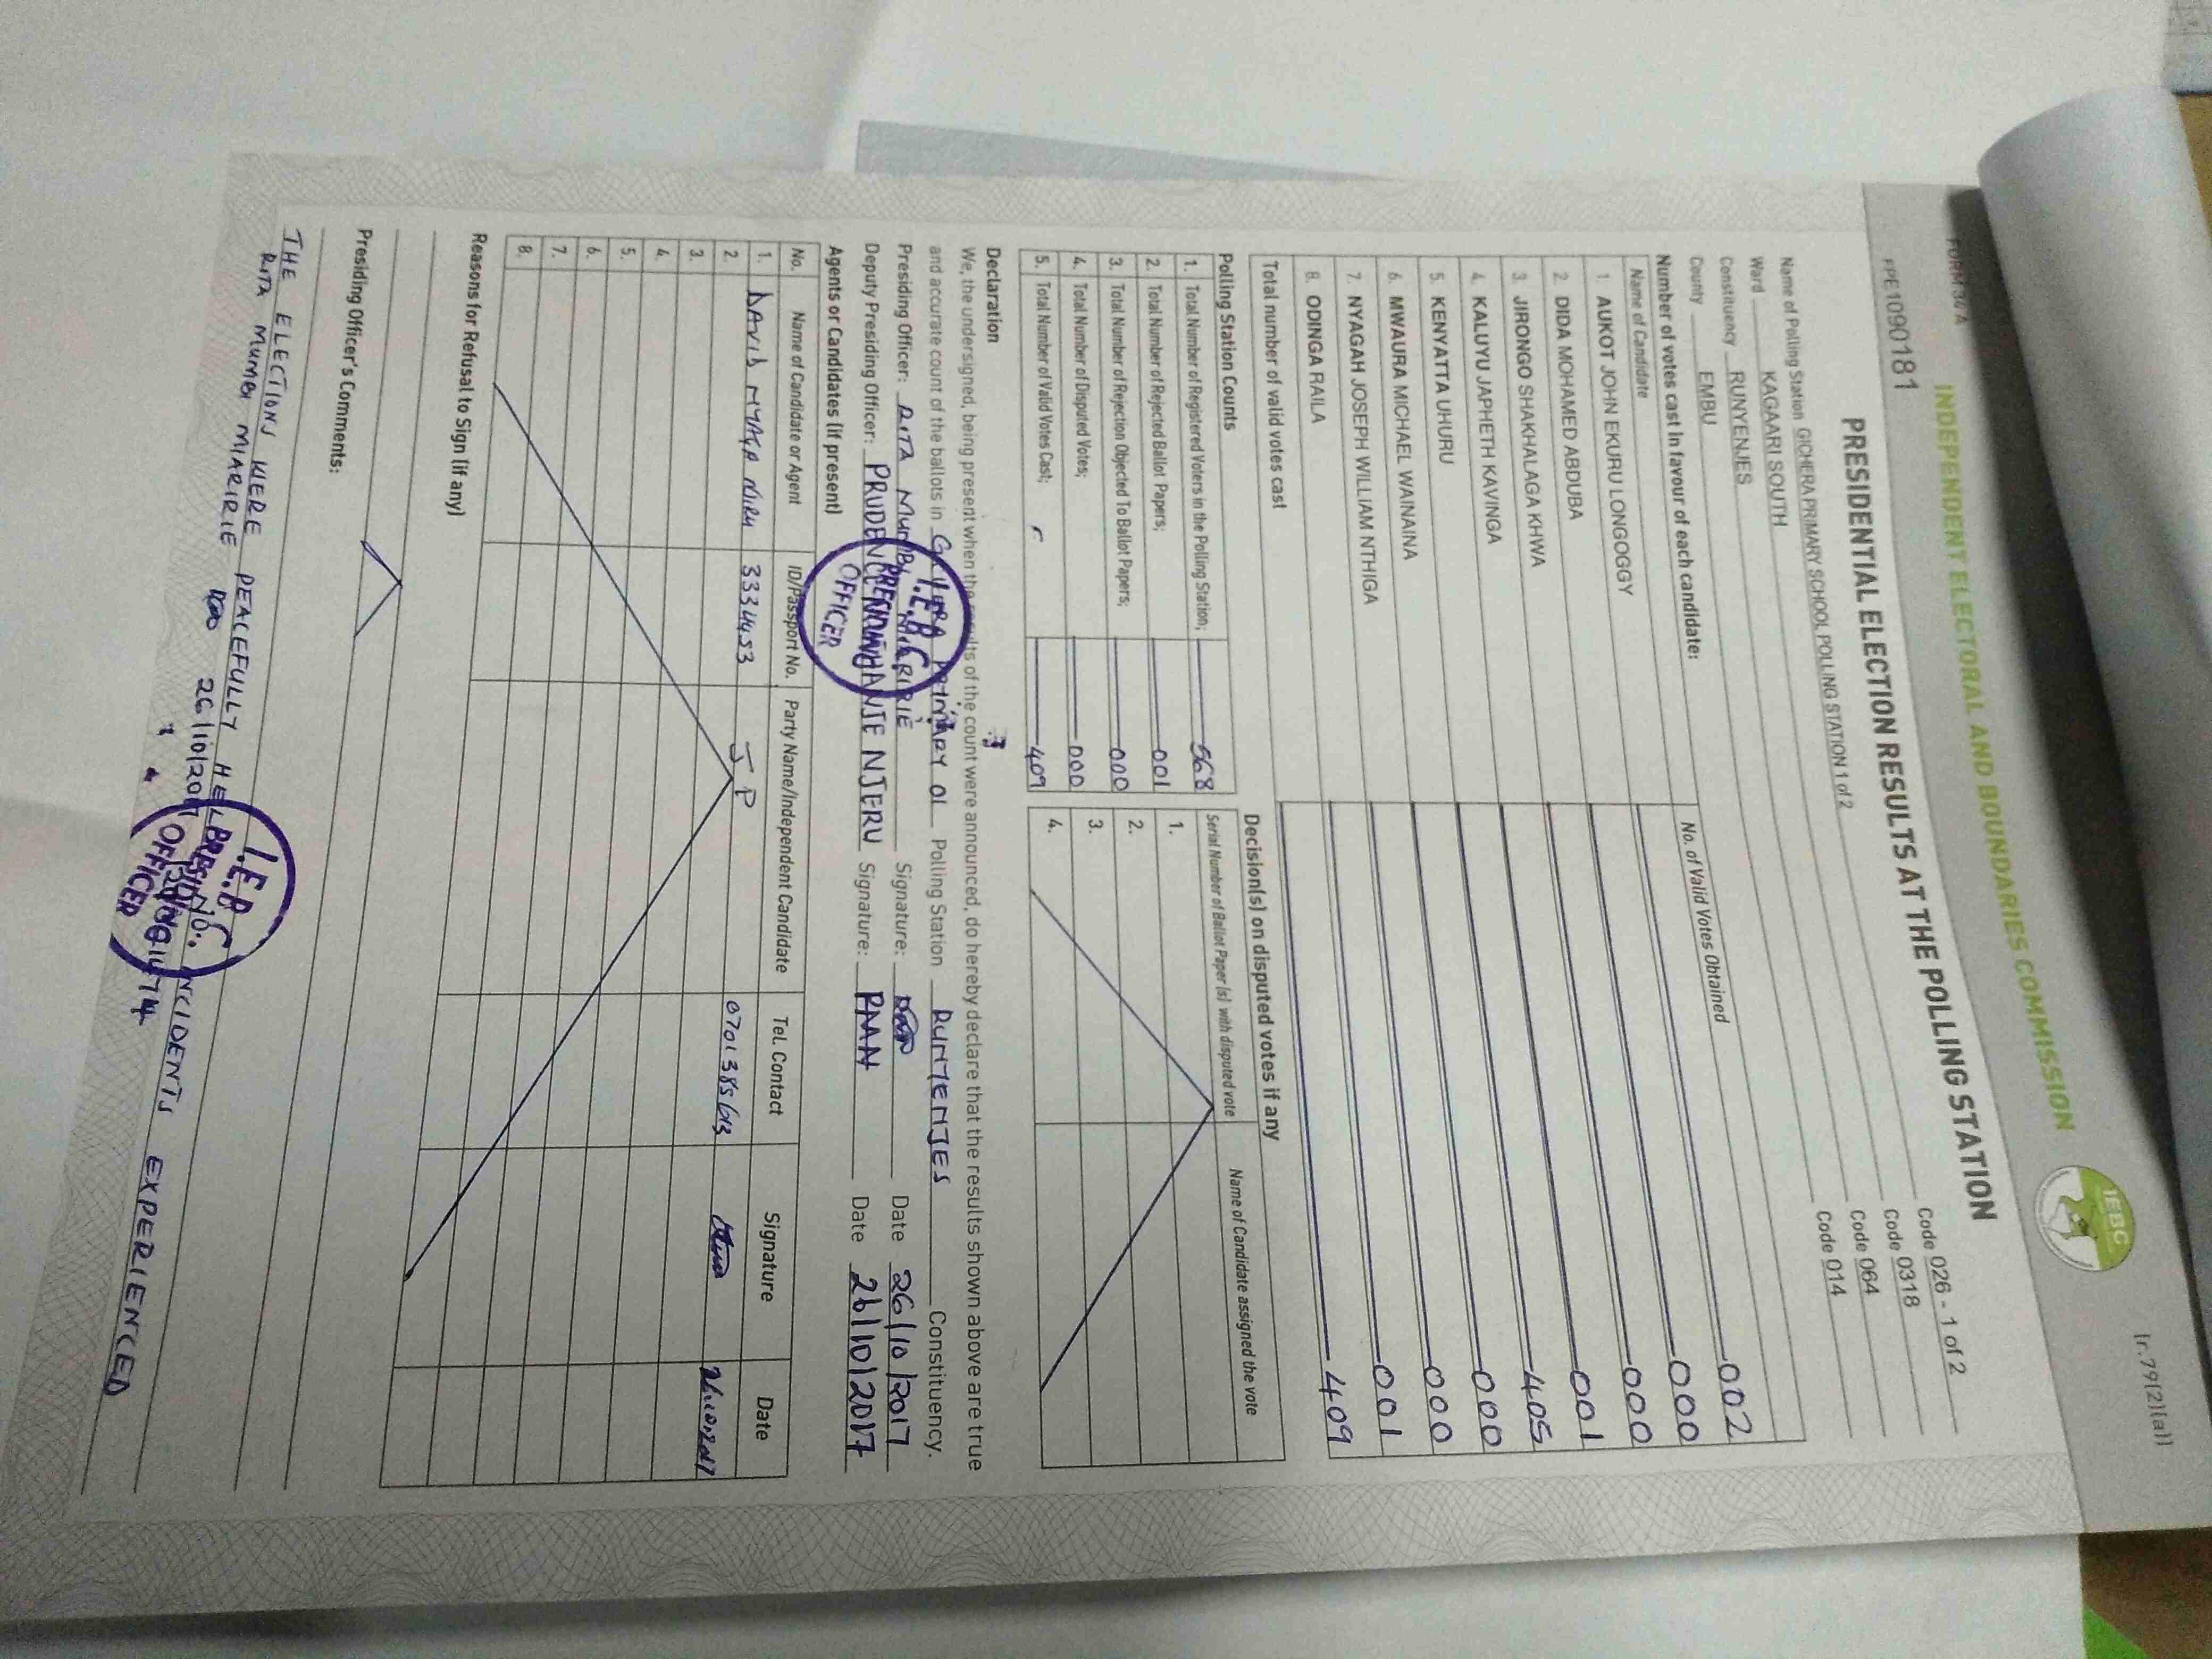 FORM 34A
[r.79(2)(a)]
FPE1090181
INDEPENDENT ELECTORAL AND BOUNDARIES COMMISSION
IEBC
PRESIDENTIAL ELECTION RESULTS AT THE POLLING STATION
Name of Polling Station GICHERA PRIMARY SCHOOL POLLING STATION 1 of 2 Code 026 - 1 of 2
Ward KAGAARI SOUTH Code 0318
Constituency RUNYENJES Code 064
County EMBU Code 014
Number of votes cast in favour of each candidate:
Name of Candidate No. of Valid Votes Obtained
1. AUKOT JOHN EKURU LONGOGGY 002
2. DIDA MOHAMED ABDUBA 000
3. JIRONGO SHAKHALAGA KHWA 000
4. KALUYU JAPHETH KAVINGA 001
5. KENYATTA UHURU 405
6. MWAURA MICHAEL WAINAINA 000
7. NYAGAH JOSEPH WILLIAM NTHIGA 000
8. ODINGA RAILA 001
Total number of valid votes cast 409
Polling Station Counts
1. Total Number of Registered Voters in the Polling Station; 568
2. Total Number of Rejected Ballot Papers; 001
3. Total Number of Rejection Objected To Ballot Papers; 000
4. Total Number of Disputed Votes; 000
5. Total Number of Valid Votes Cast; 409
Decision(s) on disputed votes if any
Serial Number of Ballot Paper (s) with disputed vote Name of Candidate assigned the vote
1.
2.
3.
4.
Declaration
We, the undersigned, being present when the results of the count were announced, do hereby declare that the results shown above are true
and accurate count of the ballots in GICHERA PRIMARY 01 Polling Station RUNYENJES Constituency.
Presiding Officer: RITA MUMBI MIARIRIE Signature: Date 26/10/2017
Deputy Presiding Officer: PRUDENCE NJERU Signature: Date 26/10/2017
I.E.B.C
PRESIDING
OFFICER
Agents or Candidates (if present)
No. Name of Candidate or Agent ID/Passport No. Party Name/Independent Candidate Tel. Contact Signature Date
1. DAVID 33344533 JP 26.10.2017
2.
3.
4.
5.
6.
7.
8.
Reasons for Refusal to Sign (if any)
Presiding Officer's Comments:
THE ELECTIONS WERE PEACEFULLY HELD INCIDENTS EXPERIENCED
RITA MUMBI MIARIRIE 26/10/2017
I.E.B.C
PRESIDING
OFFICER